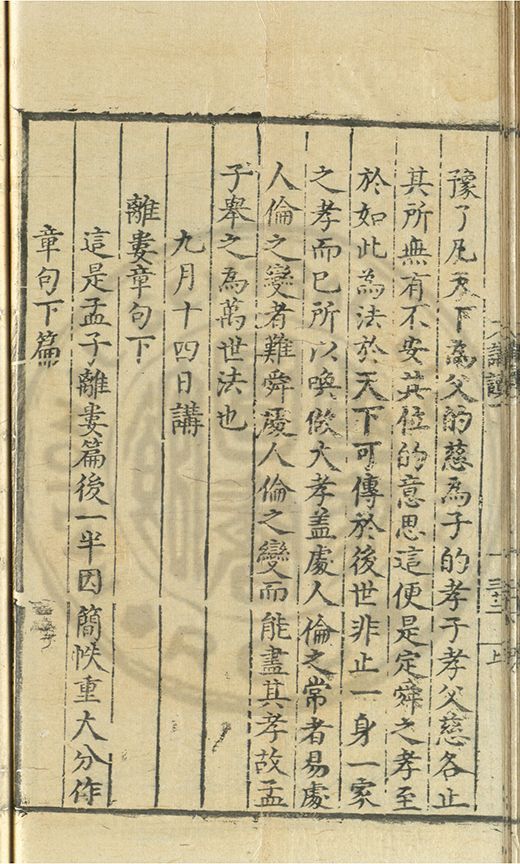 豫了凡天下為父的慈為子的孝子孝父慈各止
其所無有不安其位的意思這便是定舜之孝至
於如此為法於天下可傳於後世非止一身一家
之孝而已所以喚做大孝盖處人倫之常者易處
人倫之變者難舜處人倫之變而能盡其孝故孟
子舉之為萬世法也
九月十四日講
離婁章句下
這是孟子離婁篇後一半因簡帙重大分作
章句下篇